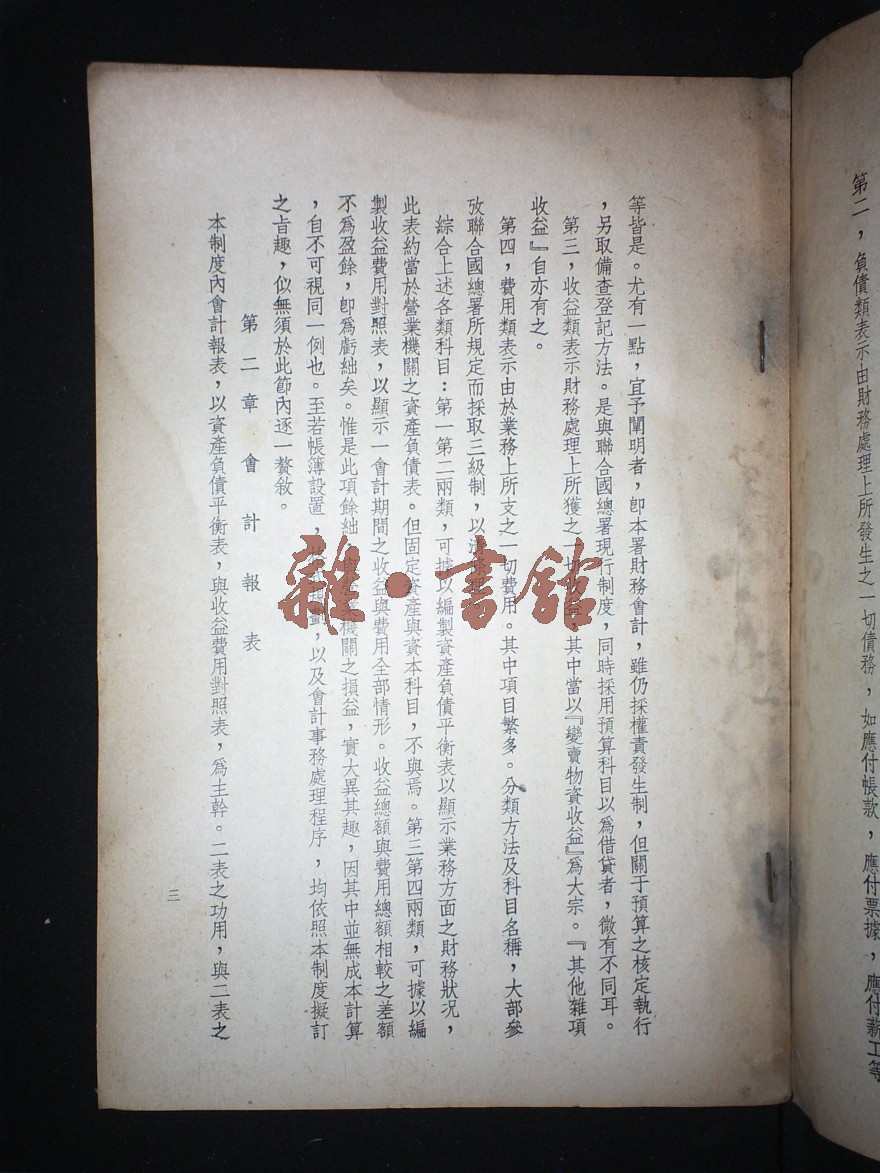 第二，負債類表示由財務處理上所發生之一切債務，如應付帳款，應付票據，應付薪工等
等皆是。尤有一點，宜予闡明者，卽本署財務會計，雖仍採權責發生制，但關于預算之核定執行
，另取備查登記方法。是與聯合國總署現行制度，同時採用預算科目以爲借貸者，微有不同耳。
第三，收益類表示財務處理上所獲之一切收益，其中當以『變賣物資收益』爲大宗。『其他雜項
收益』自亦有之。
第四，費用類表示由於業務上所支之一切費用。其中項目繁多。分類方法及科目名稱，大部參
攷聯合國總署所規定而採取三級制，以清
綜合上述各類科目：第一第二兩類，可據以編製資產負債平衡表以顯示業務方面之財務狀況，
此表約當於營業機關之資產負債表。但固定資產與資本科目，不與焉。第三第四兩類，可據以編
製收益費用對照表，以顯示一會計期間之收益與費用全部情形。收益總額與費用總額相較之差額
不爲盈餘，卽爲虧絀矣。惟是此項餘絀，與營業機關之損益，實大異其趣，因其中並無成本計算
，自不可視同一例也。至若帳簿設置，劃，以及會計事務處理程序，均依照本制度擬訂
之旨趣，似無須於此節內逐一贅敘。
第二章 會計報表
本制度內會計報表，以資產負債平衡表，與收益費用對照表，爲主幹。二表之功用，與二表之
三
雜·書館